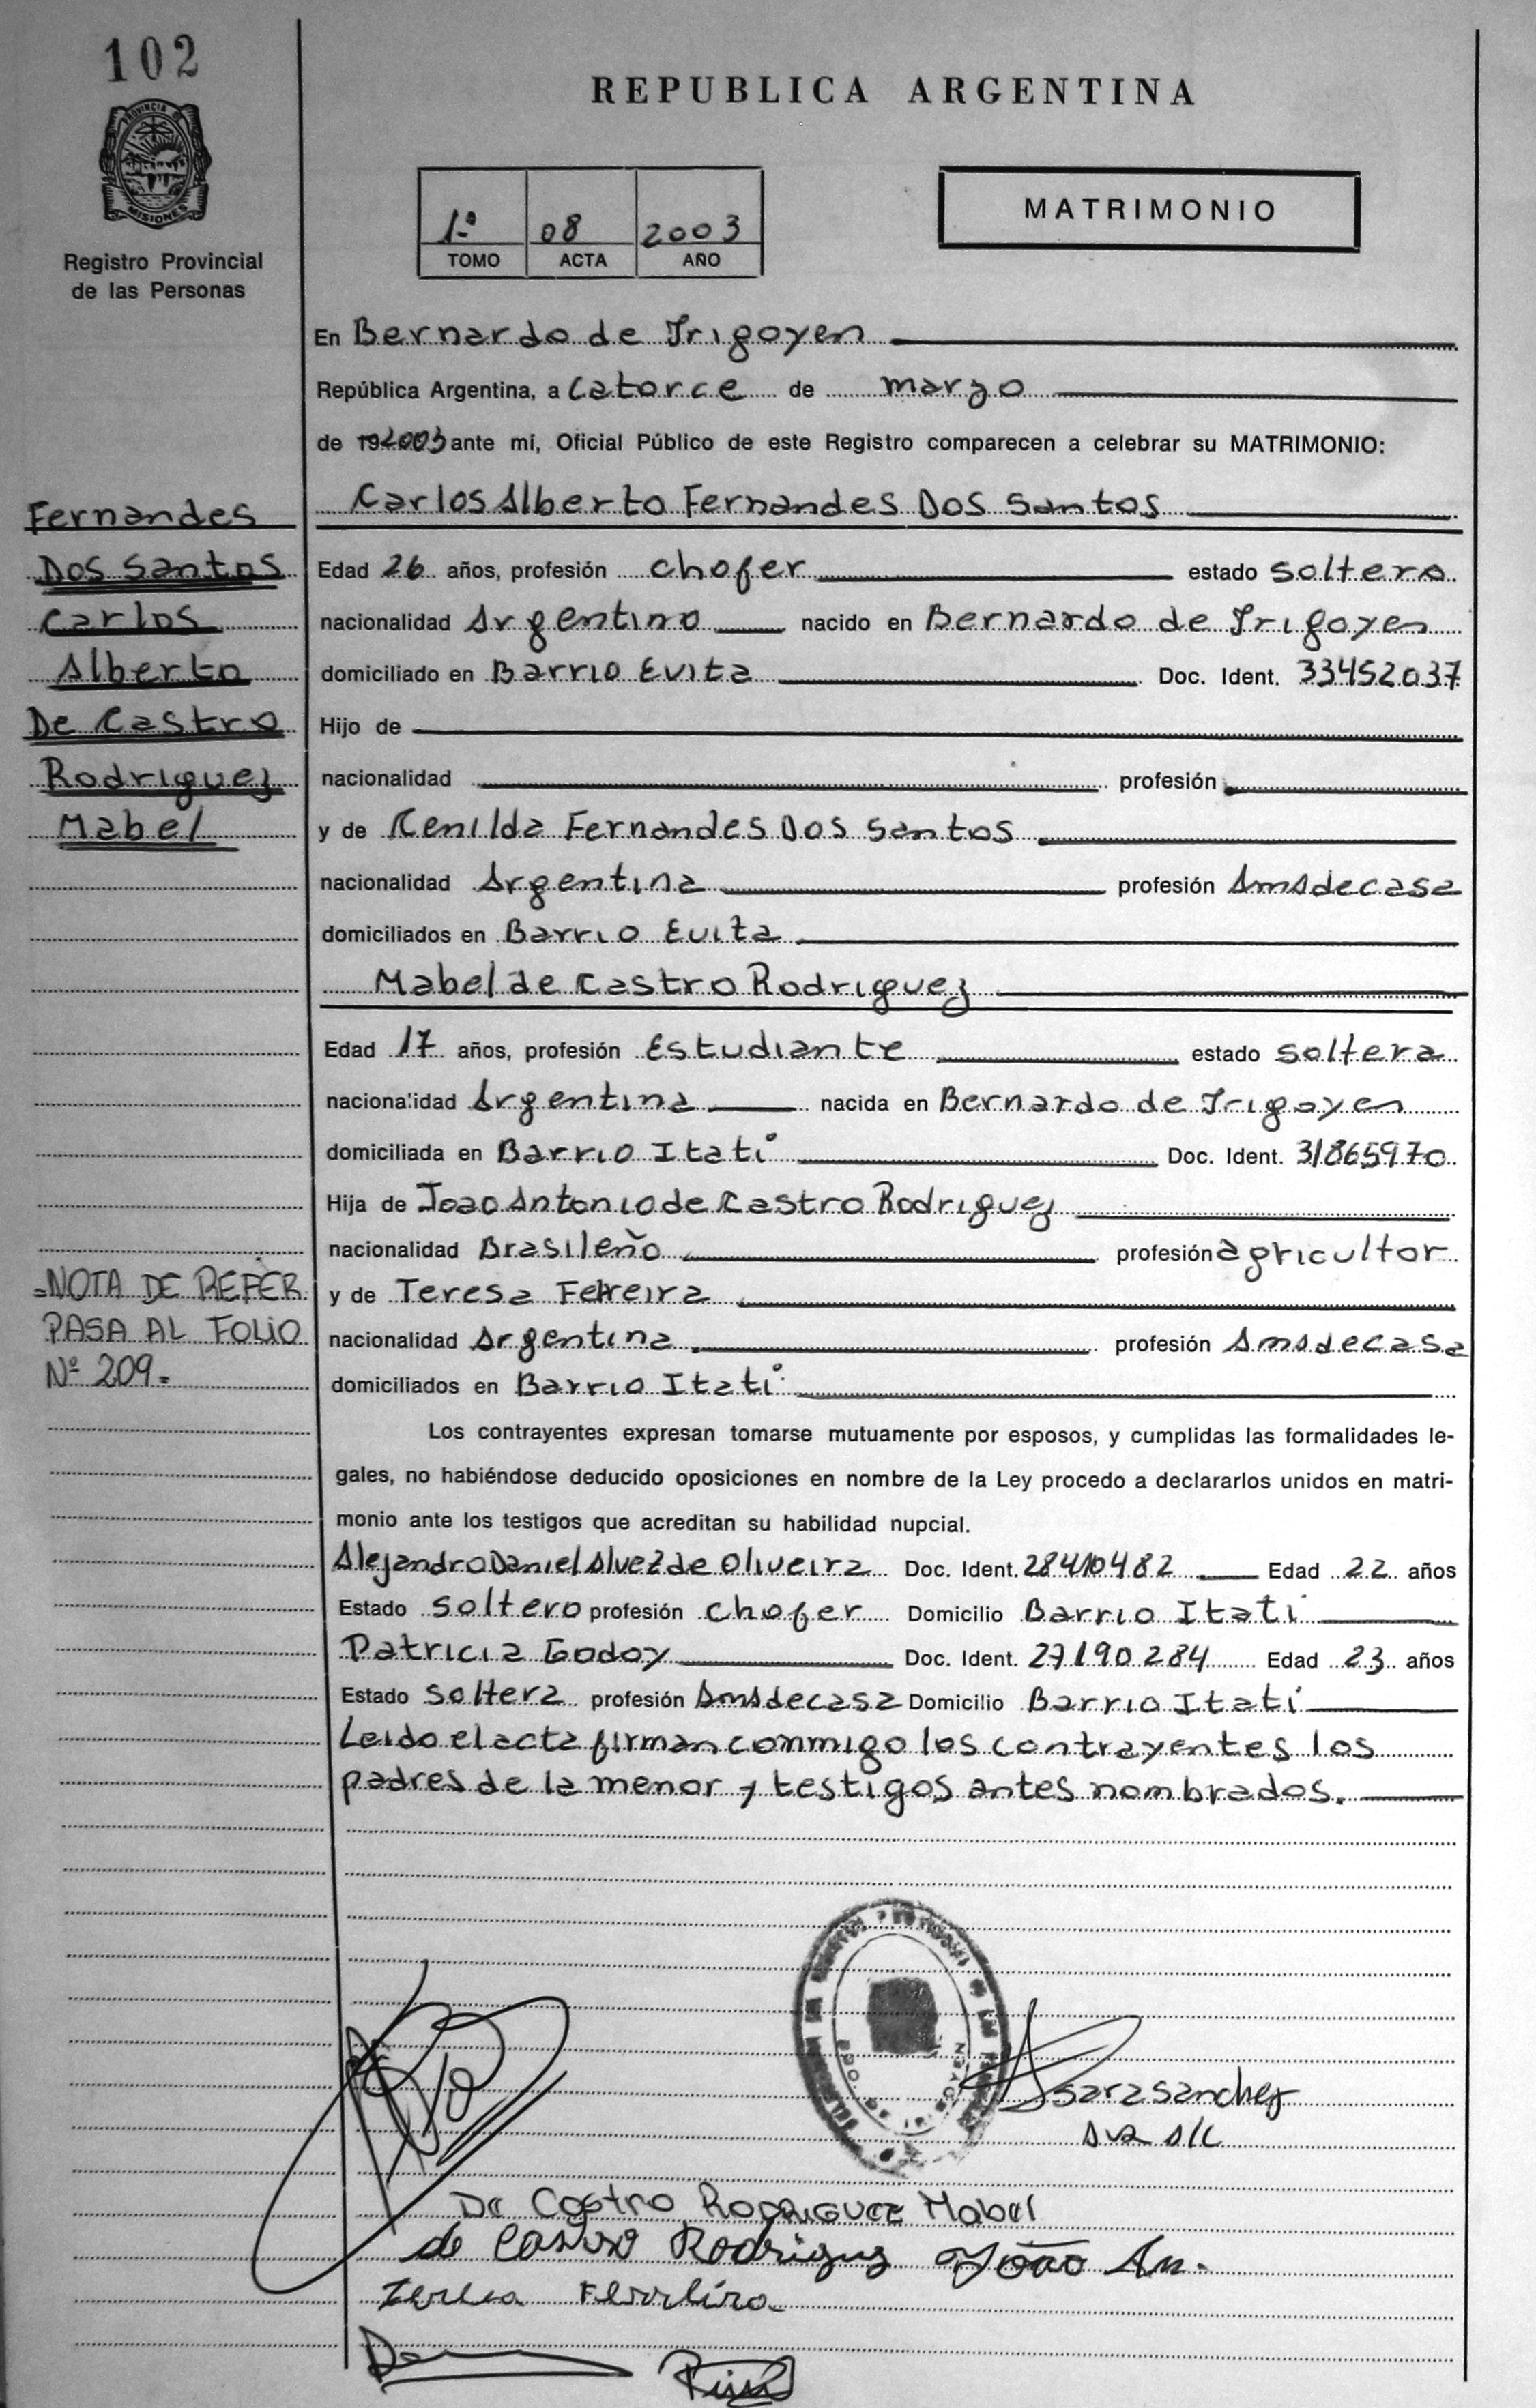 102
PROVINCIA DE
MISIONES
Registro Provincial
de las Personas
REPUBLICA ARGENTINA
1º 08 2003
TOMO ACTA AÑO
MATRIMONIO
En Bernardo de Irigoyen
República Argentina, a catorce de marzo
de 192003 ante mí, Oficial Público de este Registro comparecen a celebrar su MATRIMONIO:
Carlos Alberto Fernandes Dos Santos
Edad 26 años, profesión chofer estado soltero
nacionalidad Argentino nacido en Bernardo de Irigoyen
domiciliado en Barrio Evita Doc. Ident. 33452037
Hijo de
nacionalidad profesión
y de Cenilda Fernandes Dos Santos
nacionalidad Argentina profesión Ama de casa
domiciliados en Barrio Evita
Mabel de Castro Rodriguez
Edad 17 años, profesión Estudiante estado soltera
nacionalidad Argentina nacida en Bernardo de Irigoyen
domiciliada en Barrio Itatí Doc. Ident. 31865970
Hija de Joao Antonio de Castro Rodriguez
nacionalidad Brasileño profesión agricultor
y de Teresa Ferreira
nacionalidad Argentina profesión Ama de casa
domiciliados en Barrio Itatí
Los contrayentes expresan tomarse mutuamente por esposos, y cumplidas las formalidades le-
gales, no habiéndose deducido oposiciones en nombre de la Ley procedo a declararlos unidos en matri-
monio ante los testigos que acreditan su habilidad nupcial.
Alejandro Daniel Alvez de Oliveira Doc. Ident. 28410482 Edad 22 años
Estado soltero profesión chofer Domicilio Barrio Itatí
Patricia Godoy Doc. Ident. 27190284 Edad 23 años
Estado soltera profesión Ama de casa Domicilio Barrio Itatí
Leido el acta firman conmigo los contrayentes los
padres de la menor y testigos antes nombrados.
Fernandes
Dos Santos
Carlos
Alberto
De Castro
Rodriguez
Mabel
=NOTA DE REFER
PASA AL FOLIO
Nº 209.
Sara Sanchez
De Castro Rodriguez Mabel
de Castro Rodrigues João An.
Teresa Ferreira